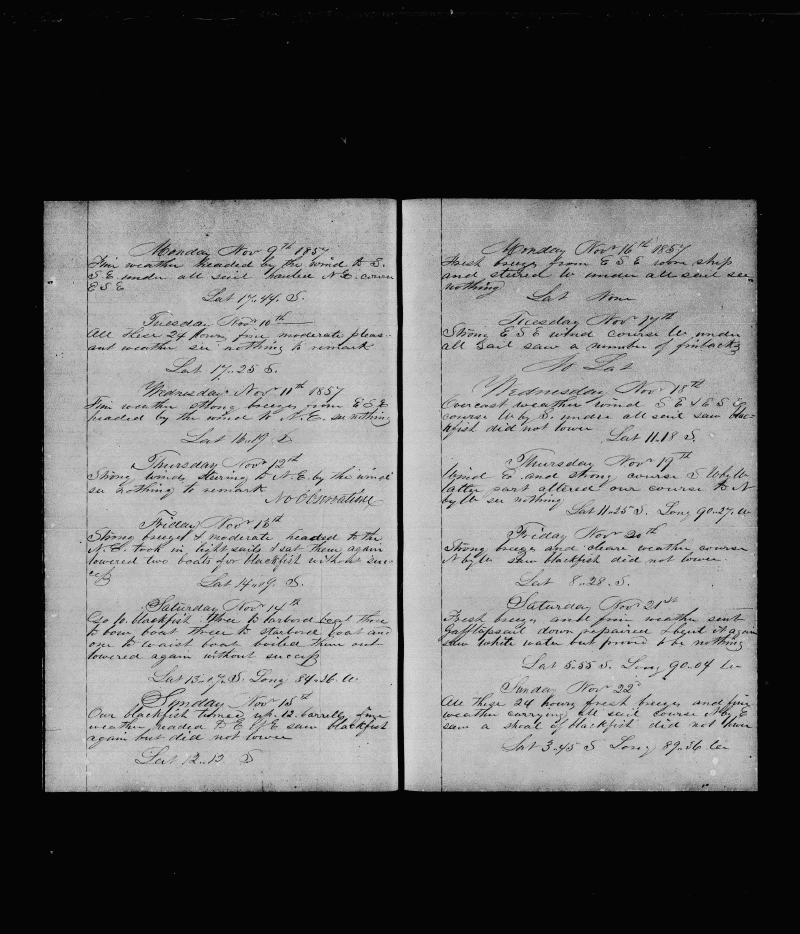 Monday Nov 9th 1857
Fine weather headed by the wind to E.
S.E. under all sail hauled N.E. course
E S E
Lat 17..44. S.
Tuesday Nov 10th
All these 24 hours fine moderate pleas-
ant weather see nothing to remark
Lat 17..25 S.
Wednesday Nov 11th 1857
Fine weather strong breezes from E S E
headed by the wind to N. E. see nothing
Lat 16..19 S
Thursday Nov 12th
Strong winds stering to N. E. by the wind
see nothing to remark
No Observation
Friday Nov 13th
Strong breezes & moderate headed to the
N. E. took in light sails & sat them again
lowered two boats for blackfish without suc-
cess
Lat 14..09. S.
Saturday Nov 14th
blackfish three to larbord boat three
to bow boat three to starbord boat and
one to waist boat boiled them out
lowered again without success
Lat 13..07. S. Long 84..36. W.
Sunday Nov 15th
Our blackfish turned up 12. barrels fine
weather headed blackfish
again but did not lower
Lat 12..12 S
Monday Nov 16th 1857
Fresh breezes from E S E ship
and stered W under all sail see
nothing
Lat None
Tuesday Nov 17th
Strong E S E wind course W. under
all sail saw a number of finbacks
No Lat
Wednesday Nov 18th
Overcast weather wind S E & E S E
course W by S. under all sail saw blac-
kfish did not lower
Lat 11.18 S.
Thursday Nov 19th
Wind E. and strong course S W by W
latter part altered our course to N
by W see nothing
Lat 11..25 S. Long 90..27. W
Friday Nov 20th
Strong breezes and cleare weather course
N by W saw blackfish did not lower
Lat 8..28. S.
Saturday Nov 21st
Fresh breezes and fine weather sent
Gafftopsail down repaired & bent it again
saw white water but proved to be nothing
Lat 5..55 S. Long 90..04 W
Sunday Nov 22d
All these 24 hours fresh breezes and fine
weather carrying all sail course N by E
saw a shoal of blackfish did not lower
Lat 3..45 S Long 89..36. W